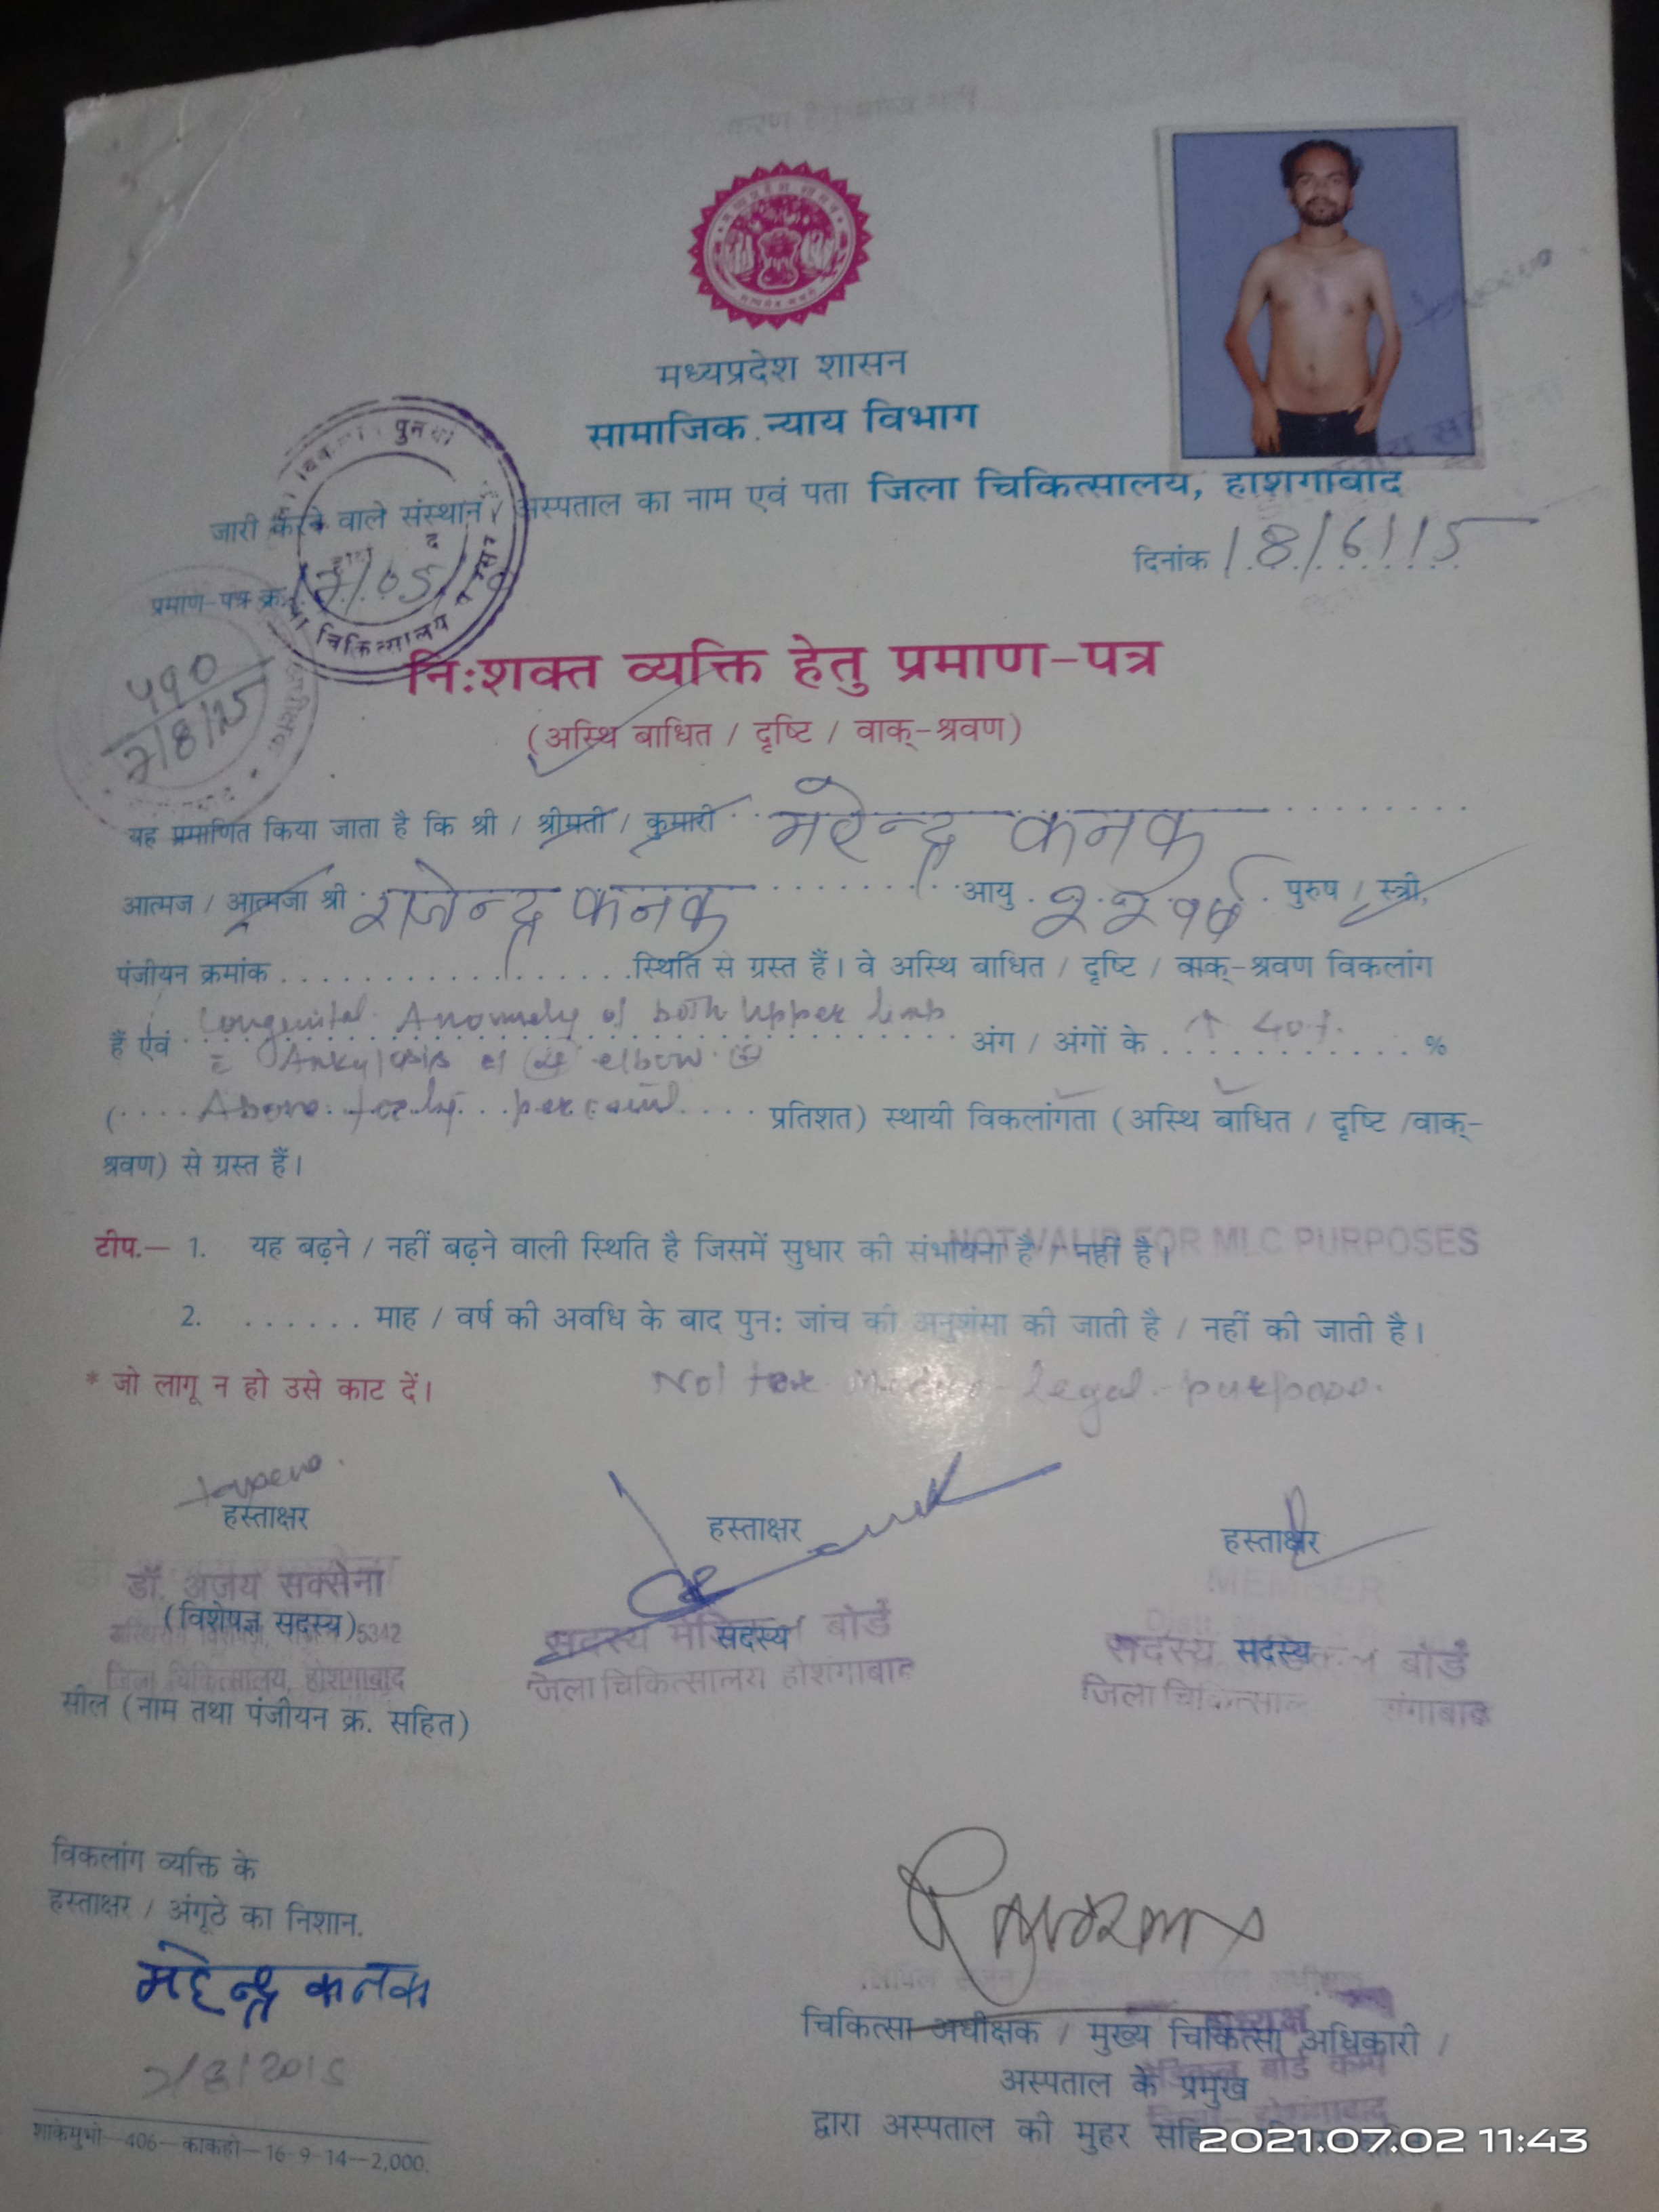 मध्यप्रदेश शासन
सामाजिक न्याय विभाग
जारी करने वाले संस्थान / अस्पताल का नाम एवं पता जिला चिकित्सालय, होशंगाबाद
दिनांक 18/6/15
प्रमाण-पत्र क्र.
चिकित्सालय
५९०
7/8/15
नि:शक्त व्यक्ति हेतु प्रमाण-पत्र
(अस्थि बाधित / दृष्टि / वाक्-श्रवण)
यह प्रमाणित किया जाता है कि श्री / श्रीमती / कुमारी महेन्द्र कनक
आत्मज / आत्मजा श्री राजेन्द्र कनक आयु २२ वर्ष पुरुष / स्त्री,
पंजीयन क्रमांक स्थिति से ग्रस्त हैं। वे अस्थि बाधित / दृष्टि / वाक्-श्रवण विकलांग
हैं एवं Congenital Anomaly of both Upper limb
Ankylosis of elbow अंग / अंगों के ↑ 40% %
(Above forty percent प्रतिशत) स्थायी विकलांगता (अस्थि बाधित / दृष्टि /वाक्-
श्रवण) से ग्रस्त हैं।
टीप.— 1. यह बढ़ने / नहीं बढ़ने वाली स्थिति है जिसमें सुधार की संभावना है / नहीं है।
NOT VALID FOR MLC PURPOSES
2. ...... माह / वर्ष की अवधि के बाद पुन: जांच की अनुशंसा की जाती है / नहीं की जाती है।
* जो लागू न हो उसे काट दें।
Not for Medico-legal purpose.
हस्ताक्षर हस्ताक्षर हस्ताक्षर
डॉ. अजय सक्सेना MEMBER
(विशेषज्ञ सदस्य) 5342 सदस्य मेडिकल बोर्ड सदस्य सदस्य बोर्ड सदस्य
जिला चिकित्सालय, होशंगाबाद जिला चिकित्सालय होशंगाबाद जिला चिकित्सालय होशंगाबाद
सील (नाम तथा पंजीयन क्र. सहित)
विकलांग व्यक्ति के
हस्ताक्षर / अंगूठे का निशान.
महेन्द्र कनक
7/8/2015
चिकित्सा अधीक्षक / मुख्य चिकित्सा अधिकारी /
अस्पताल के प्रमुख
द्वारा अस्पताल की मुहर सहित
शाकेमुभो—406—काकहो—16-9-14—2,000.
2021.07.02 11:43